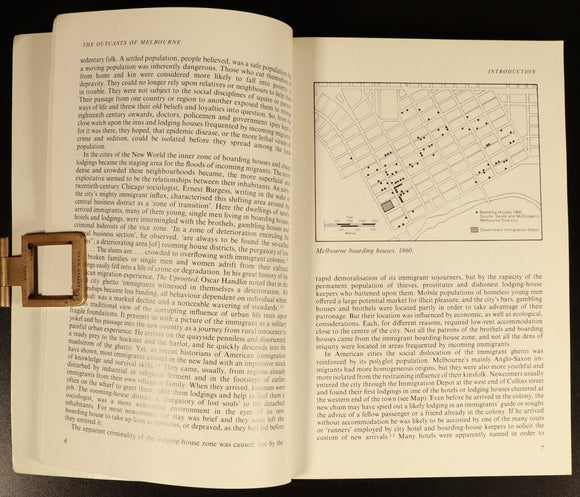 THE OUTCASTS OF MELBOURNE
sedentary folk. A settled population, people believed, was a safe population,
a moving population was inherently dangerous. Those who cut themselves
from home and kin were considered more likely to fall into poverty
depravity. They could no longer rely upon relatives or neighbours to help
in trouble. They were not subject to the social disciplines of squire or
Their passage from one country or region to another exposed them to
ways of life and threw their old beliefs and loyalties into question. So, from
eighteenth century onwards, doctors, policemen and government spies kept
close watch upon the inns and lodging houses frequented by incoming migrants,
for it was there, they hoped, that epidemic disease, or the more lethal virus of
crime and sedition, could be isolated before they spread among the local
population.
In the cities of the New World the inner zone of boarding houses and cheap
lodgings became the staging area for the floods of incoming migrants. The more
dense and crowded these neighbourhoods became, the more superficial and
exploitative seemed to be the relationships between their inhabitants. An early
twentieth-century Chicago sociologist, Ernest Burgess, writing in the wake of
the city's mighty immigrant influx, characterised this shifting area around the
central business district as a 'zone of transition'. Here the dwellings of newly
arrived immigrants, many of them young, single men living in boarding houses or
hotels and lodgings, were intermingled with the brothels, gambling houses and
criminal hideouts of the vice zone. 'In a zone of deterioration encircling the
central business section', he observed, 'are always to be found the so-called
"slums", a deteriorating area [of] rooming house districts, the purgatory of lost
souls . . . The slums are . . . crowded to overflowing with immigrant colonies.'
The broken families or single men and women adrift from their cultural
moorings easily fell into a life of crime or degradation. In his great history of the
American migration experience, The Uprooted, Oscar Handlin noted that in
the inner city ghetto 'immigrants witnessed in themselves a deterioration. All
relationships became less binding, all behaviour dependent on individual whim.
The result was a marked decline and a noticeable wavering of standards.'
This traditional view of the corrupting influence of urban life rests upon
fragile foundations. It presents us with a picture of the immigrant as a solitary
yokel and his passage into the new country as a journey from rural innocence to
painful urban experience. He arrives on the quayside penniless and disoriented,
a ready prey to the huckster and the harlot, and he quickly descends into the
maelstrom of the ghetto. Yet, as recent historians of American immigration
have shown, most immigrants arrived in the new land with an impressive stock
of knowledge and survival skills. They came, usually, from regions already
disturbed by industrial or religious ferment and in the footsteps of earlier
immigrants from their own village or family. When they arrived, kinsmen were
often on the wharf to greet them, offer them lodgings and help to find them a
job. The rooming-house district, a purgatory of lost souls to the detached
sociologist, was a more welcoming environment in the eyes of its new
inhabitants. For most newcomers the stay was brief and they soon left the
boarding house to take up lives as virtuous, or depraved, as they had led before
they entered it.
The apparent criminality of the lodging-house zone was caused, not by the
6
INTRODUCTION
Boarding Houses 1860
Source: Sands and McDougall's
Melbourne Directory
Government Immigration Depot
Melbourne boarding houses, 1860.
rapid demoralisation of its immigrant sojourners, but by the rapacity of the
permanent population of thieves, prostitutes and dishonest lodging-house
keepers who battened upon them. Mobile populations of homeless young men
offered a large potential market for illicit pleasure, and the city's bars, gambling
houses and brothels were located partly in order to take advantage of their
patronage. But their location was influenced by economic, as well as ecological,
considerations. Each, for different reasons, required low-rent accommodation
close to the centre of the city. Not all the patrons of the brothels and boarding
houses came from the immigrant boarding-house zone; and not all the dens of
iniquity were located in areas frequented by incoming immigrants.
In American cities the social dislocation of the immigrant ghetto was
extremely pronounced. Melbourne's mainly Anglo-Saxon im-
migrants had more homogeneous origins; but they were also more youthful and
more isolated from the restraining influence of their kinsfolk. Newcomers usually
entered the city through the Immigration Depot at the west end of Collins street
and found their first lodgings in one of the hotels or lodging houses clustered at
the western end of the town (see Map). Even before he arrived in the colony, the
new chum may have spied out a likely lodging in an immigrants' guide or sought
the advice of a fellow passenger or a friend already in the colony. If he arrived
without accommodation he was likely to be accosted by one of the many touts
or 'runners' employed by city hotel and boarding-house keepers to solicit the
custom of new arrivals. Many hotels were apparently named in order to
7